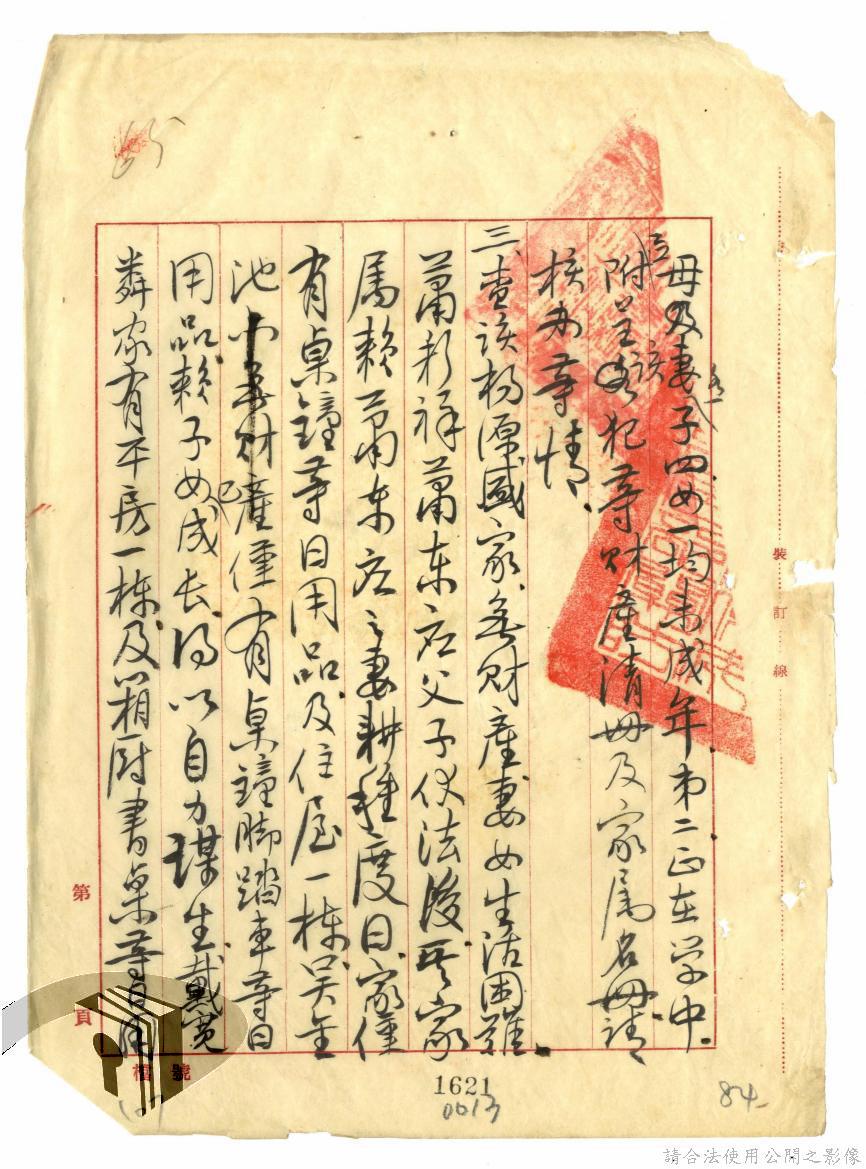 母及妻各一子四女一均未成年弟二正在学中
附呈該犯等財產清冊及家属名冊請
核办等情
三、查該楊源盛家無財產妻女生活困難
蕭彩祥蕭東庄父子伏法後其家
属賴蕭東庄之妻耕種度日家僅
有桌鐘等日用品及住屋一棟吴金
池財產僅有桌鐘脚踏車等日
用品賴子女成长得以自力謀生戴寬
家有平房一棟及箱厨書桌等日用
裝訂線
第
頁
檔號
1621
0013
84
請合法使用公開之影像